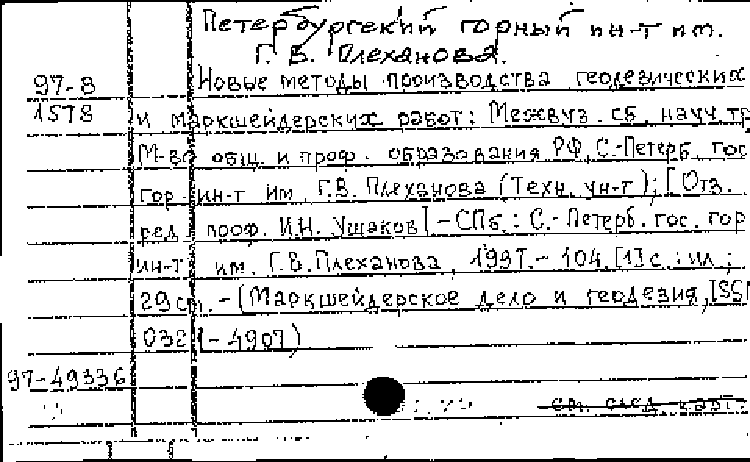 Петербургский горный ин-т им.
Г. В. Плеханова.
97-8 Новые методы производства геодезических
1578 и маркшейдерских работ: Межвуз. сб. науч. тр
М-во общ. и проф. образования РФ, С.-Петерб. гос
гор. ин-т им. Г.В. Плеханова (Техн. ун-т); [Отв.
ред. проф. И.Н. Ушаков] - СПб.: С.-Петерб. гос. гор
ин-т им. Г.В. Плеханова, 1997. - 104, [1] с.: ил;
29 см. - (Маркшейдерское дело и геодезия, ISSN
032 - 4907)
97-49336
см. след. карт.